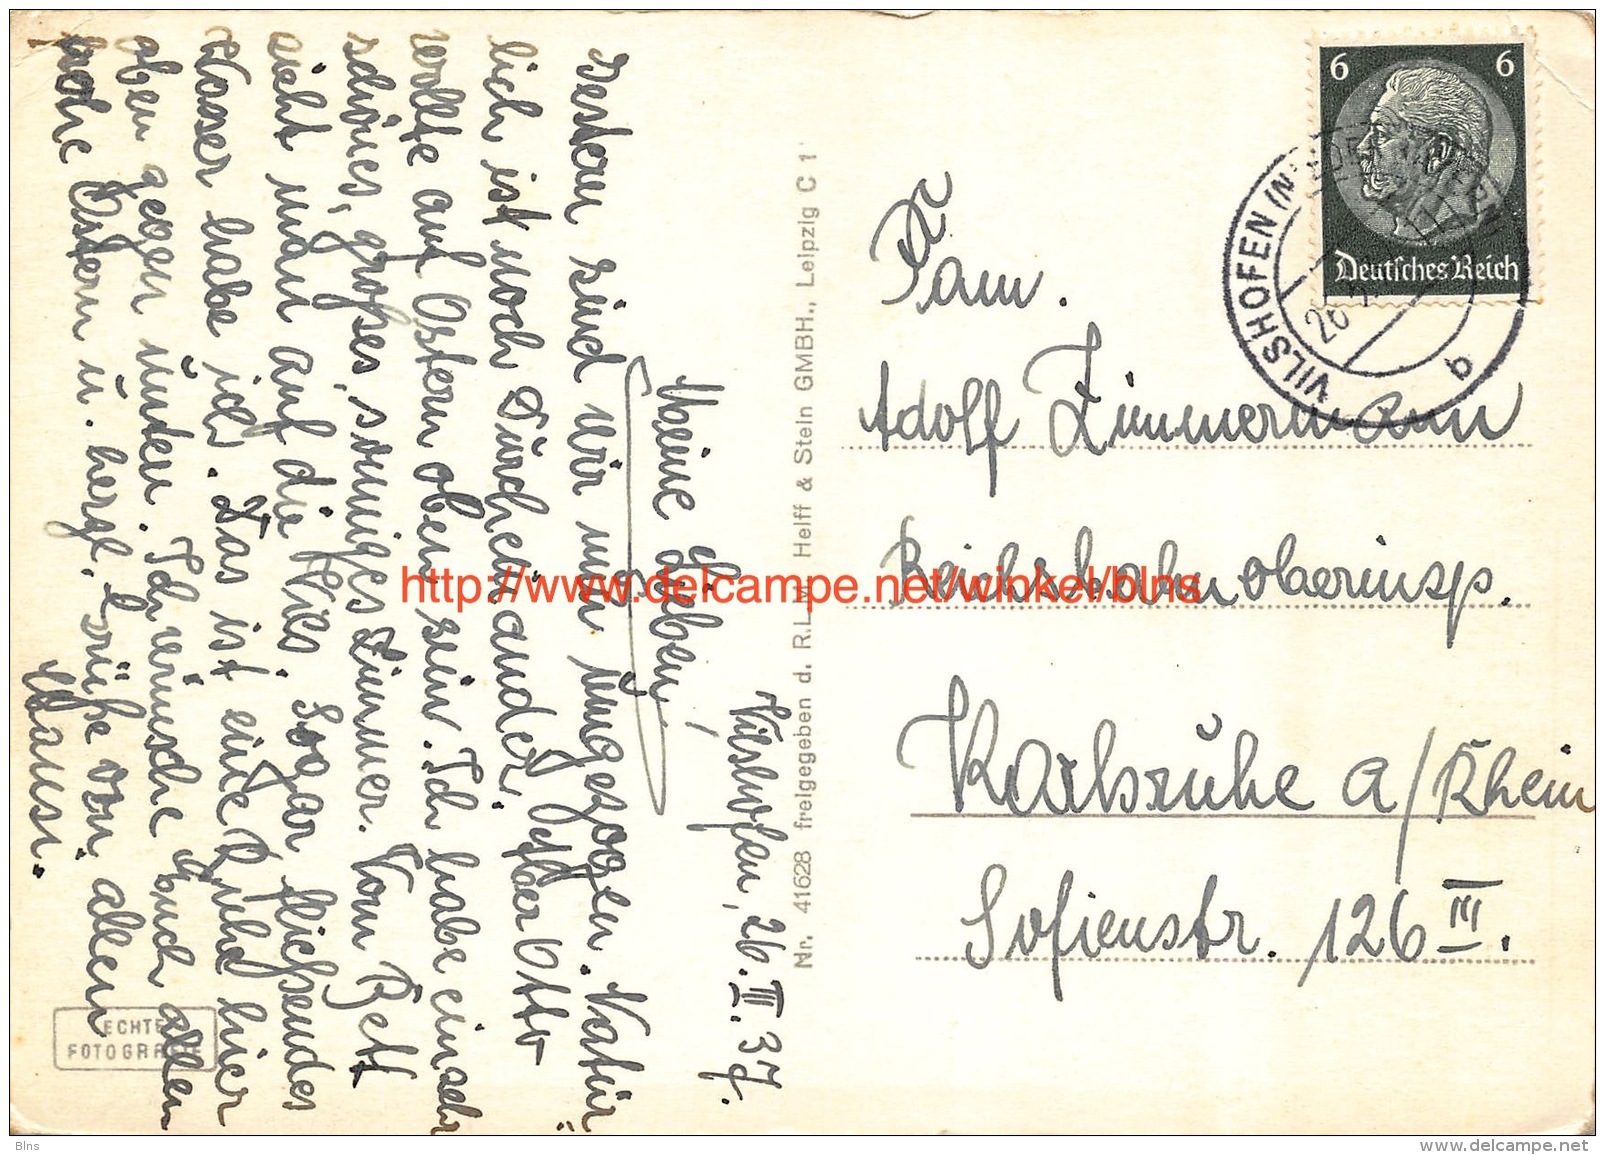 Vilshofen, 26. III. 37.
Meine Lieben,
Gestern sind wir nun umgezogen. Natür
lich ist noch Durcheinander. Aber Otto
wollte auf Ostern oben sein. Ich habe ein sehr
schönes, großes, sonniges Zimmer. Vom Bett
sieht man auf die Vils. Sogar fließendes
Wasser habe ich. Das ist eine Ruhe hier
oben gegen unten. Ich wünsche Euch allen
frohe Ostern u. herzl. Grüße von allen
Mausi.
ECHTE
FOTOGRAFIE
Nr. 41628 freigegeben d. R.L.M. Helff & Stein GMBH., Leipzig C 1
6 6
Deutsches Reich
VILSHOFEN (NIEDERBAYERN)
26
b
Fam.
Adolf Zimmermann
Reichsbahnoberinsp.
Karlsruhe a/Rhein
Sofienstr. 126 III.
http://www.delcampe.net/winkel/blns
Blns
www.delcampe.net